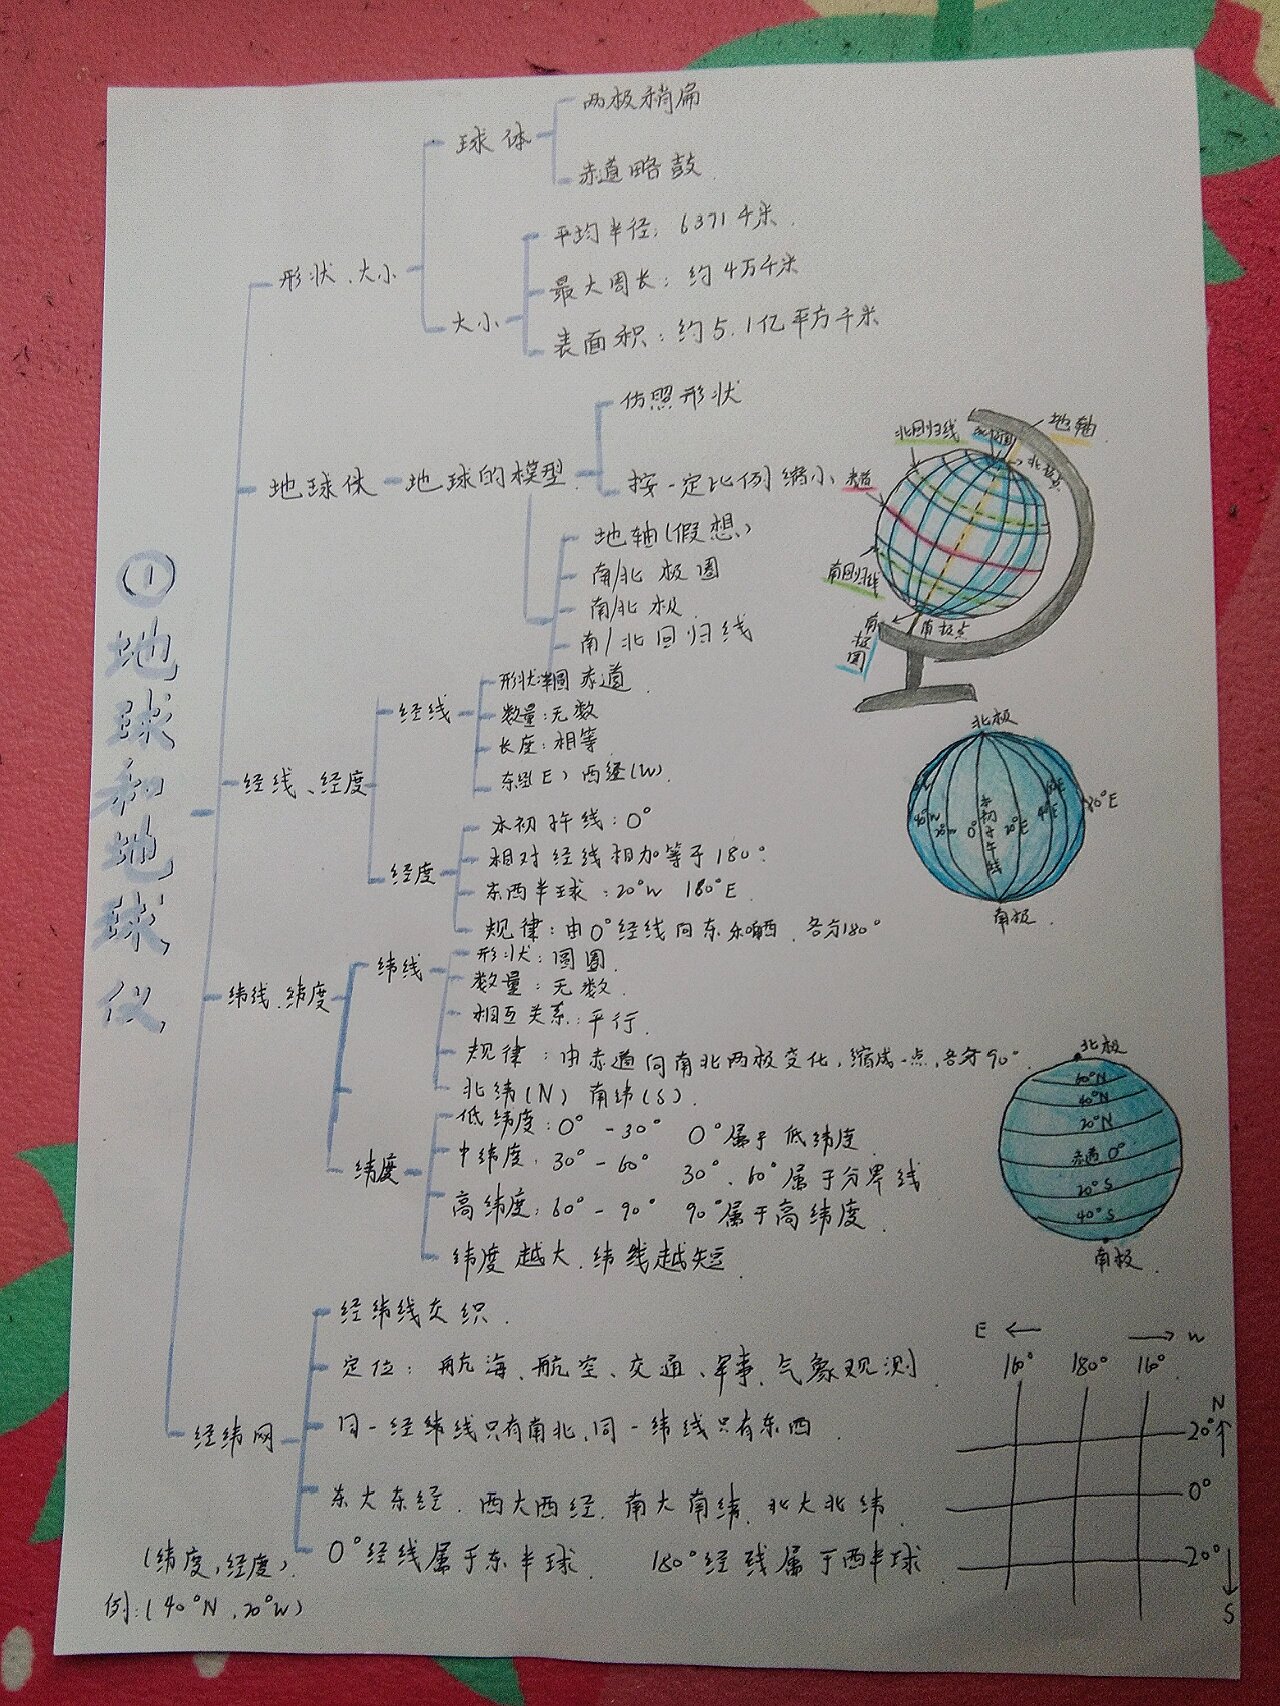 ① 地球和地球仪
形状、大小
球体
两极稍扁
赤道略鼓
大小
平均半径：6371千米
最大周长：约4万千米
表面积：约5.1亿平方千米
地球体
地球的模型
仿照形状
按一定比例缩小
地轴(假想)
南/北极圈
南/北极
南/北回归线
赤道
经线、经度
经线
形状：半圆
数量：无数
长度：相等
东经(E) 西经(W)
经度
本初子午线：0°
相对经线相加等于180°
东西半球：20°W 180°E
规律：由0°经线向东 西 各分180°
纬线、纬度
纬线
形状：圆圈
数量：无数
相互关系：平行
规律：由赤道向南北两极变化，缩成一点，各分90°
北纬(N) 南纬(S)
纬度
低纬度：0°-30° 0°属于低纬度
中纬度：30°-60° 30°、60°属于分界线
高纬度：60°-90° 90°属于高纬度
纬度越大、纬线越短
经纬网
经纬线交织
定位：航海、航空、交通、军事、气象观测
同一经纬线只有南北、同一纬线只有东西
东大东经、西大西经、南大南纬、北大北纬
0°经线属于东半球 180°经线属于西半球
(纬度,经度)
例：(40°N,20°W)
北回归线
北极圈
地轴
北极点
赤道
南回归线
南极圈
南极点
北极
40°W
20°W
0°
本初子午线
20°E
40°E
180°E
南极
北极
60°N
40°N
20°N
赤道 0°
20°S
40°S
南极
E ← → W
160° 180° 160°
N
20° ↑
0°
20° ↓
S